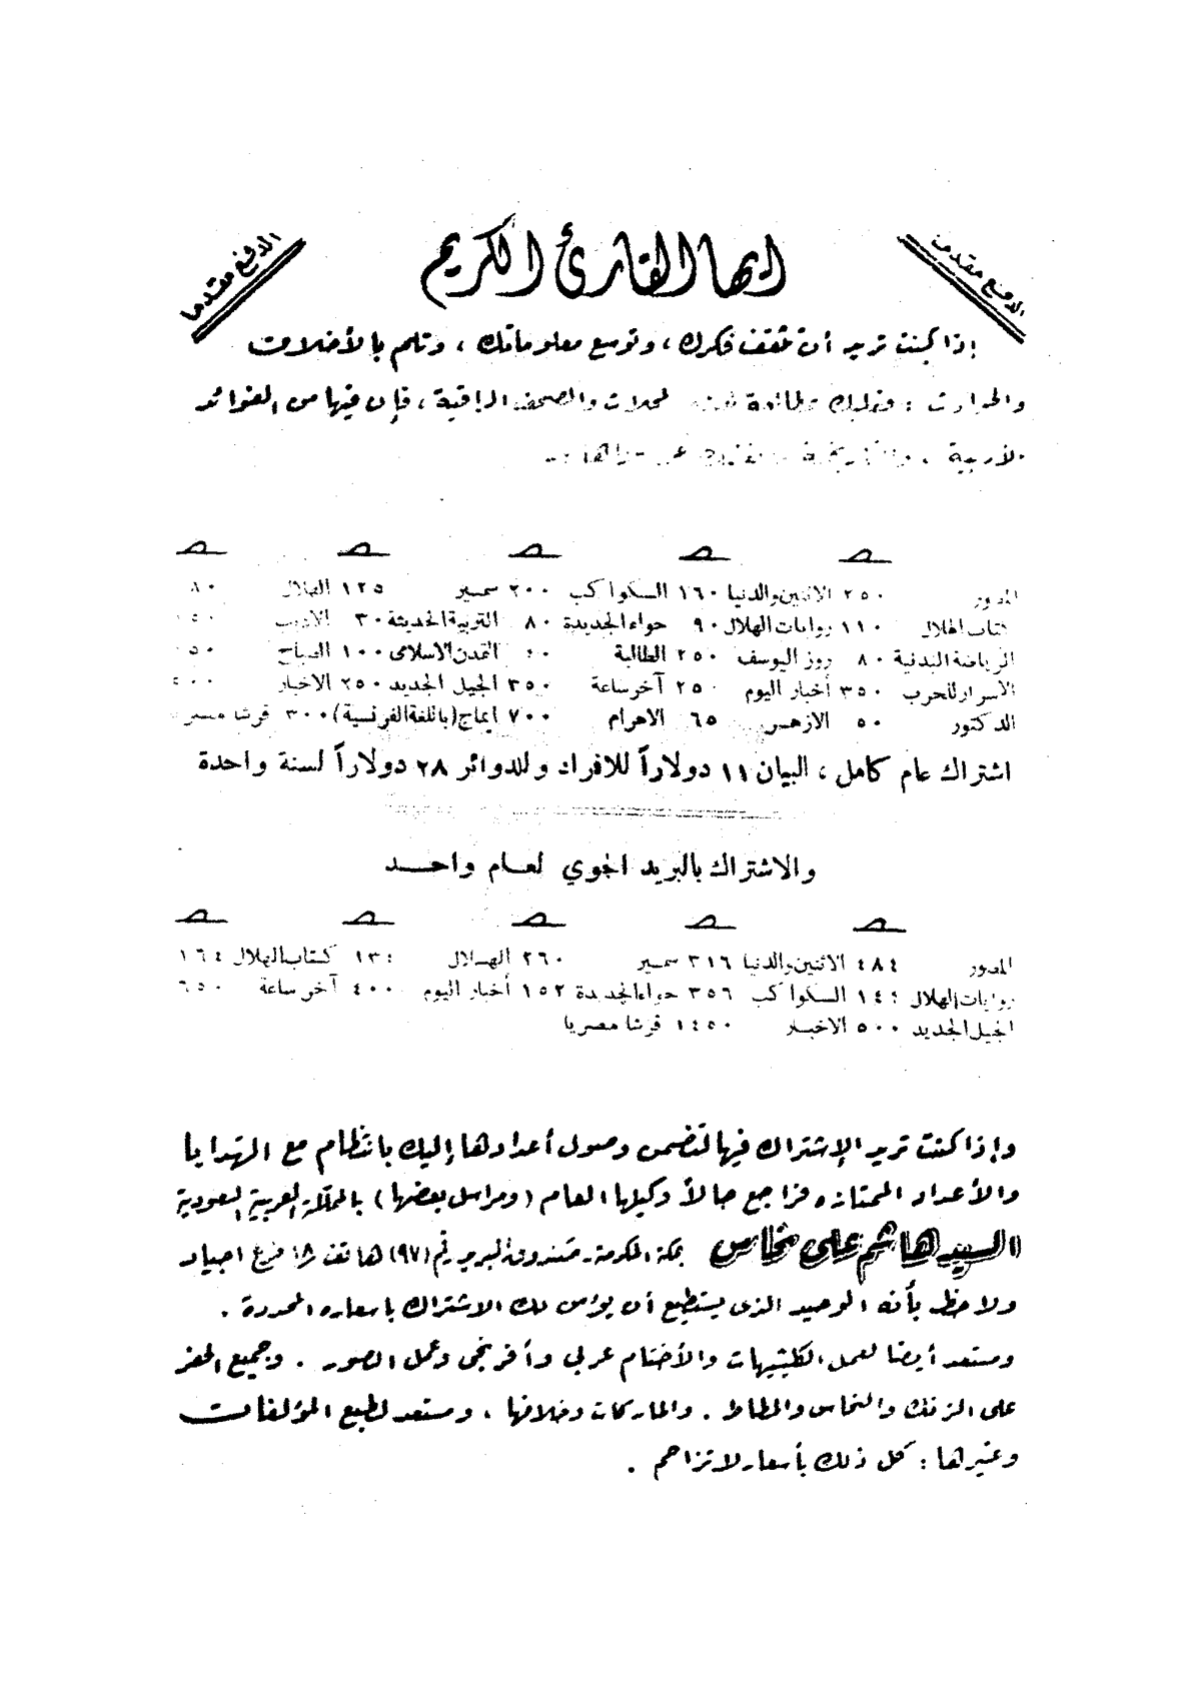 الدفع مقدما
ايها القارئ الكريم
الدفع مقدما
إذا كنت تريد أن تثقف فكرك، وتوسع معلوماتك، وتلم بالأخلاق
والحوادث : فعليك بمطالعة هذه المجلات والصحف الراقية، فإن فيها من الفوائد
الأدبية
صـ صـ صـ صـ صـ
المصور ٢٥٠ الاثنين والدنيا ١٦٠ السكواكب ٢٠٠ سمير ١٢٥ الهلال ٨٠
كتاب الهلال ١١٠ روايات الهلال ٩٠ حواء الجديدة ٨٠ التربية الحديثة ٣٠ الأديب
الرياضة البدنية ٨٠ روز اليوسف ٢٥٠ الطالبة التمدن الاسلامى ١٠٠ الصباح
الاسرار للحرب ٣٥٠ أخبار اليوم ٢٥٠ آخر ساعة ٣٥٠ الجيل الجديد ٢٥٠ الاخبار
الدكتور ٥٠ الازهر ٦٥ الاهرام ٧٠٠ ايماج (باللغة الفرنسية) ٣٠٠ قرشا مصر
اشتراك عام كامل، البيان ١١ دولاراً للافراد وللدوائر ٢٨ دولاراً لسنة واحدة
والاشتراك بالبريد الجوي لعام واحد
صـ صـ صـ صـ صـ
المصور ٤٨٤ الاثنين والدنيا ٣١٦ سمير ٢٦٠ الهلال كتاب الهلال ١٦٤
روايات الهلال السكواكب ٣٥٦ حواء الجديدة ١٥٢ أخبار اليوم ٤٠٠ آخر ساعة ٦٥٠
الجيل الجديد ٥٠٠ الاخبار ١٤٥٠ قرشا مصريا
وإذا كنت تريد الإشتراك فيها لتضمن وصول أعدادها إليك بانتظام مع الهدايا
والأعداد الممتازه فراجع حالاً وكيلها العام (ومراسل بعضها) بالمملكة العربية السعودية
السيد هاشم على نحاس بمكة المكرمة ـ صندوق البريد رقم (٩٧) هاتف ١٨ فرع اجياد
ولاحظ بأنه الوحيد الذى يستطيع أن يؤمن لك الاشتراك باسعاره المحددة .
ومستعد أيضا لعمل الكليشيهات والأختام عربى وأفرنجى وعمل الصور . وجميع الحفر
على الزنك والنحاس والمطاط . والماركات وخلافها ، ومستعد لطبع المؤلفات
وغيرها : كل ذلك بأسعار لا تزاحم .